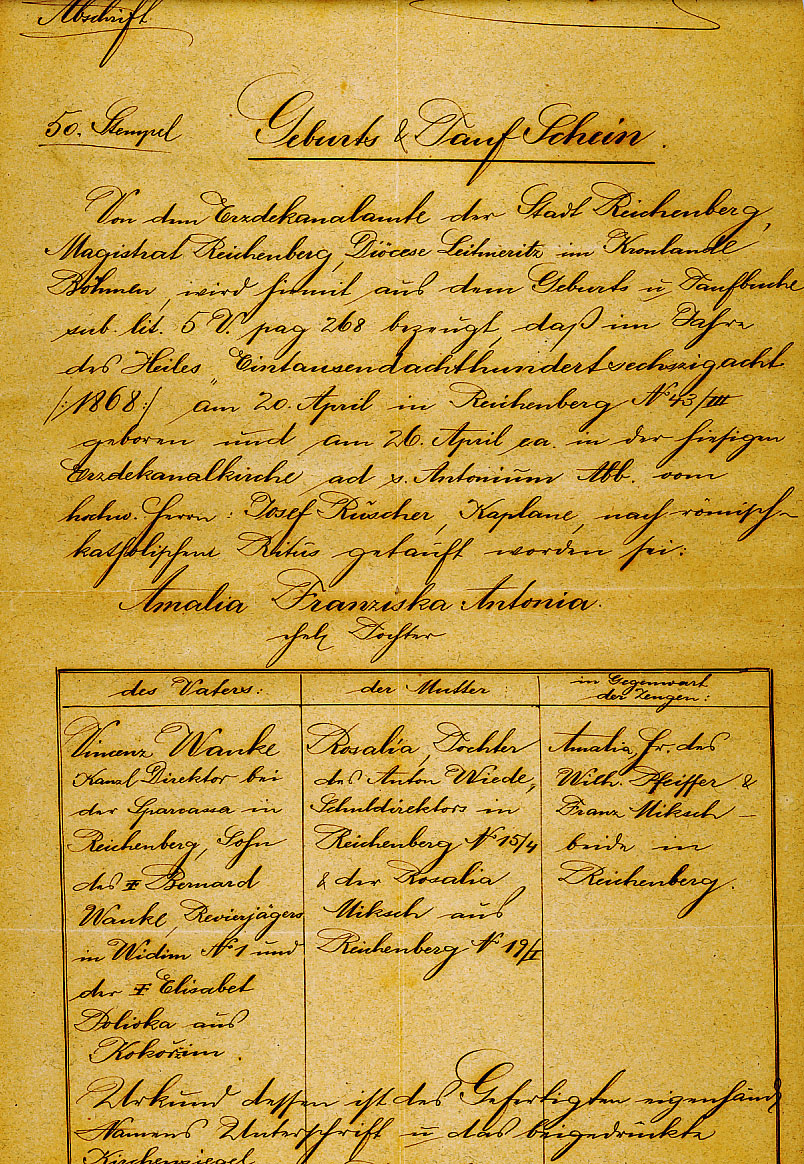 Abschrift.
50. Stempel
Geburts & Tauf Schein.
Von dem Erzdekanalamte der Stadt Reichenberg,
Magistrat Reichenberg, Diöcese Leitmeritz im Kronlande
Böhmen, wird hiemit aus dem Geburts u. Taufbuche
sub. lit. 5 V. pag 268 bezeugt, daß im Jahre
des Heiles „Eintausendachthundertsechszigacht
/:1868:/ am 20. April in Reichenberg No 43/III
geboren und am 26. April ea. in der hiesigen
Erzdekanalkirche ad s. Antonium Abb. vom
hochw. Herrn: Josef Rüscher, Kaplane, nach römisch-
katholischem Ritus getauft worden sei:
Amalia Franziska Antonia.
ehel. Tochter
des Vaters:
Vincenz Wanke
Kanzl Direktor bei
der Sparcassa in
Reichenberg, Sohn
des ✝ Bernard
Wanke, Revierjägers
in Widim No 1 und
der ✝ Elisabet
aus
Kokořzim.
der Mutter
Rosalia, Tochter
des Anton Wiede,
Schuldirektors in
Reichenberg No 15/4
& der Rosalia
Miksch aus
Reichenberg No 19/I
in Gegenwart
der Zeugen:
Amalia, Fr. des
Wilh. Pfeiffer &
Franz Miksch –
beide in
Reichenberg.
Urkund dessen ist des Gefertigten eigenhänd
Namens Unterschrift u das beigedrückte
Kirchensiegel